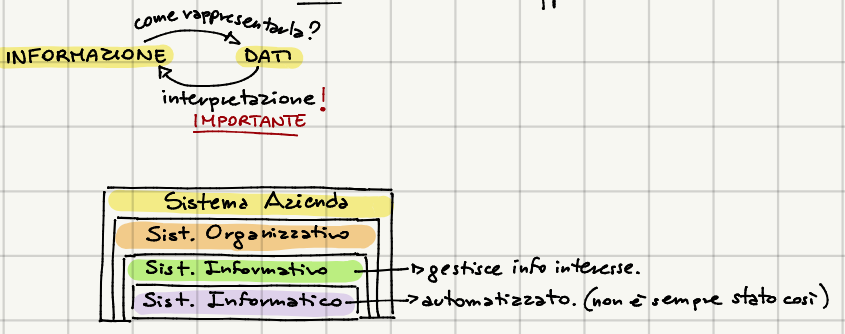 come rappresentarla?
INFORMAZIONE DATI
interpretazione!
IMPORTANTE
Sistema Azienda
Sist. Organizzativo
Sist. Informativo → gestisce info interesse.
Sist. Informatico → automatizzato. (non è sempre stato così)